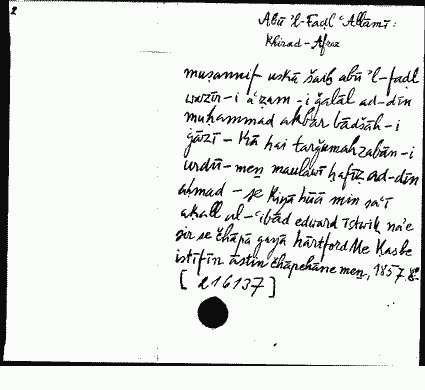 2
Abū 'l-Faḍl ʿAllāmī:
Khirad-Afroz
muṣannif uskā šaiḫ abū 'l-faḍl
wazīr-i aʿẓam-i ǧalāl ad-dīn
muḥammad akbar bādšāh-i
ġāzī-kā hai tarǧumah zabān-i
urdū-meṉ maulawī ḥafīẓ ad-dīn
aḥmad-se kiyā hūā min saʿī
aḳall al-ʿibād edward īstwik
se čhāpā gayā hārtford ke ḳaṣbe
istifin āstin čhāpeḫāne meṉ, 1857. 8°
[216137]